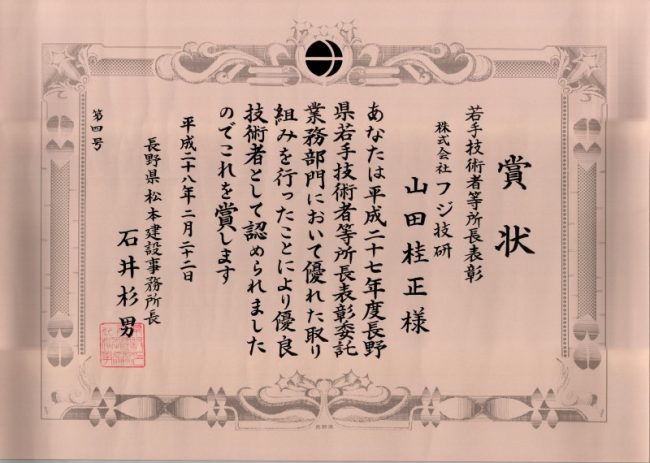 賞状
若手技術者等所長表彰
株式会社フジ技研
山田桂正様
あなたは平成二十七年度長野
県若手技術者等所長表彰委託
業務部門において優れた取り
組みを行ったことにより優良
技術者として認められました
のでこれを賞します
平成二十八年二月二十二日
長野県松本建設事務所長
石井杉男
第四号